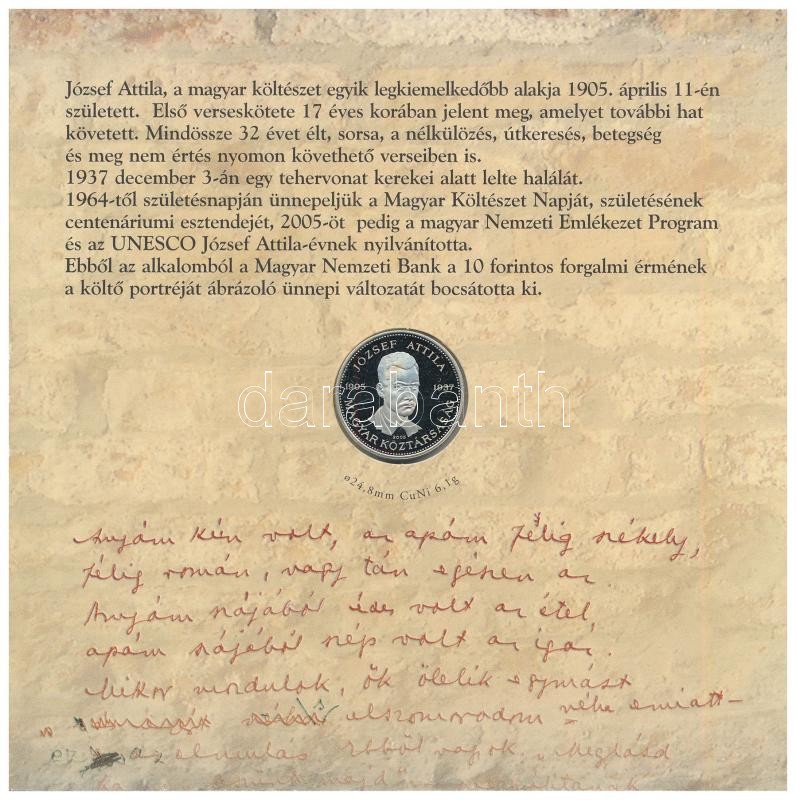 József Attila, a magyar költészet egyik legkiemelkedőbb alakja 1905. április 11-én
született. Első verseskötete 17 éves korában jelent meg, amelyet további hat
követett. Mindössze 32 évet élt, sorsa, a nélkülözés, útkeresés, betegség
és meg nem értés nyomon követhető verseiben is.
1937 december 3-án egy tehervonat kerekei alatt lelte halálát.
1964-től születésnapján ünnepeljük a Magyar Költészet Napját, születésének
centenáriumi esztendejét, 2005-öt pedig a magyar Nemzeti Emlékezet Program
és az UNESCO József Attila-évnek nyilvánította.
Ebből az alkalomból a Magyar Nemzeti Bank a 10 forintos forgalmi érmének
a költő portréját ábrázoló ünnepi változatát bocsátotta ki.
JÓZSEF ATTILA
1905 1937
2005
MAGYAR KÖZTÁRSASÁG
darabanth
ø24,8mm CuNi 6,1g
Anyám kún volt, az apám félig székely,
félig román, vagy tán egészen az.
Anyám szájából édes volt az étel,
apám szájából szép volt az igaz.
Mikor mozdulok, ők ölelik egymást
elszomorodom néha emiatt–
ez az elmulás. Ebből vagyok. „Meglásd